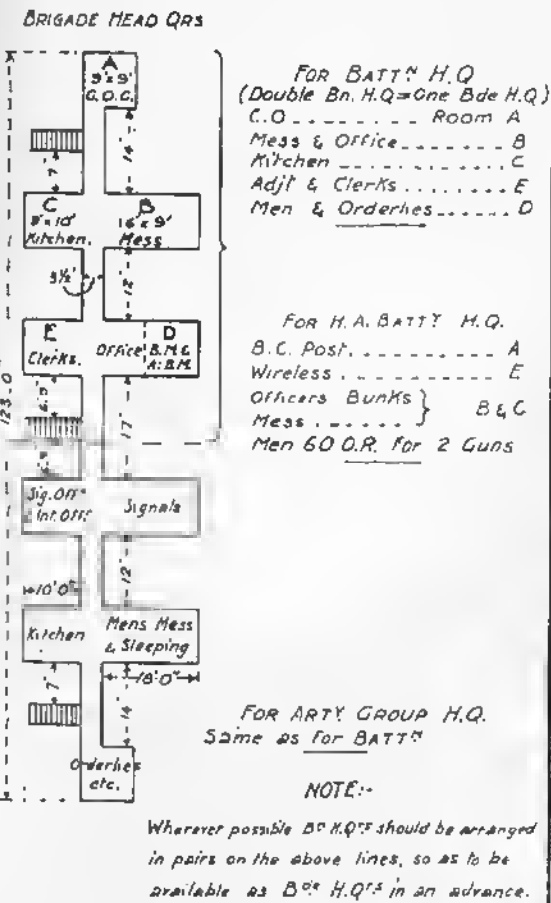 BRIGADE HEAD QRS
A
9'x 9'
G.O.C.
14'
7'
C
9'x 10'
Kitchen.
B
16'x 9'
Mess
3½'
12'
E
Clerks.
Office
D
B.M. &
A.B.M.
6.5'
123.0'
17'
6.5'
Sig. Offr
& Int. Offr
Signals
12'
10'0"
Kitchen
Mens Mess
& Sleeping
18'0"
7'
14'
Orderlies
etc.
FOR BATTN H.Q
(Double Bn. H.Q=One Bde H.Q)
C.O. ........ Room A
Mess & Office ........ B
Kitchen ........ C
Adjt & Clerks ........ E
Men & Orderlies ...... D
FOR H.A. BATTY H.Q.
B.C. Post. ........ A
Wireless ........ E
Officers Bunks
Mess ......
} B & C
Men 60 O.R. for 2 Guns
FOR ARTY GROUP H.Q.
Same as for BATTN
NOTE:-
Wherever possible Bn H.Qrs should be arranged
in pairs on the above lines, so as to be
available as Bde H.Qrs in an advance.